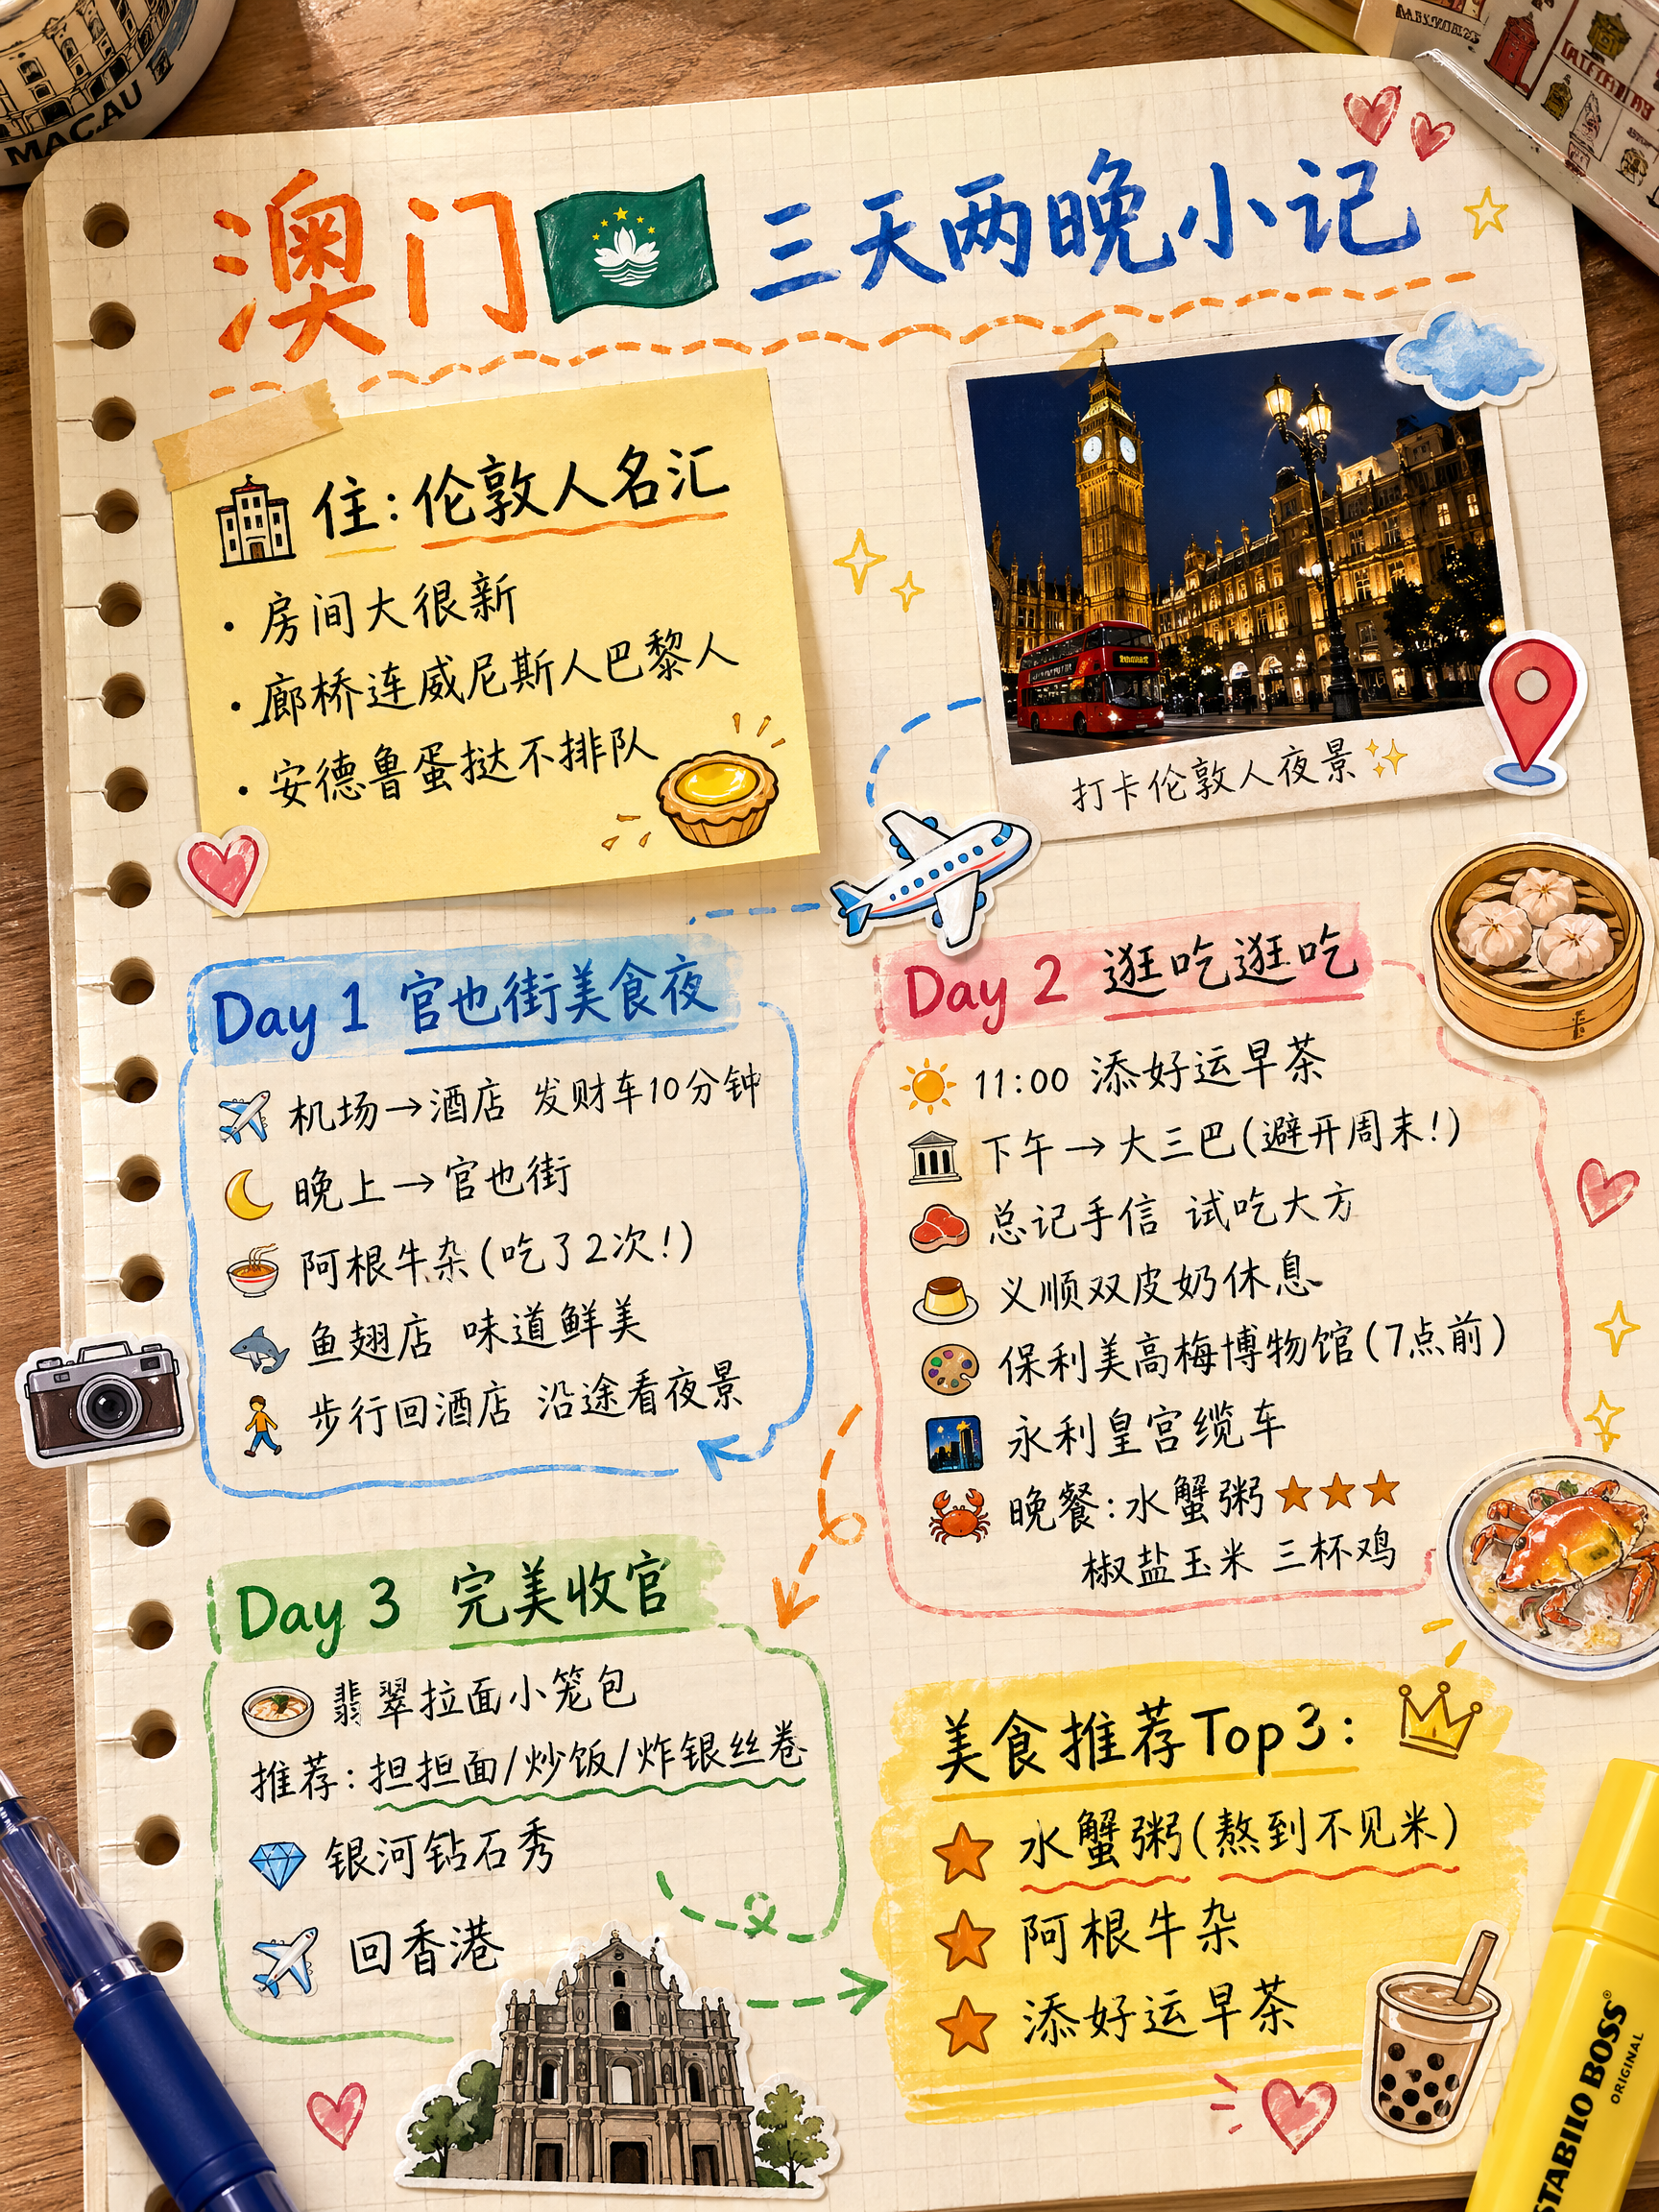 MACAU
澳门 三天两晚小记
住:伦敦人名汇
· 房间大很新
· 廊桥连威尼斯人巴黎人
· 安德鲁蛋挞不排队
打卡伦敦人夜景
Day 1 官也街美食夜
机场→酒店 发财车10分钟
晚上→官也街
阿根牛杂(吃了2次!)
鱼翅店 味道鲜美
步行回酒店 沿途看夜景
Day 2 逛吃逛吃
11:00 添好运早茶
下午→大三巴(避开周末!)
总记手信 试吃大方
义顺双皮奶休息
保利美高梅博物馆(7点前)
永利皇宫缆车
晚餐:水蟹粥★★★
椒盐玉米 三杯鸡
Day 3 完美收官
翡翠拉面小笼包
推荐:担担面/炒饭/炸银丝卷
银河钻石秀
回香港
美食推荐Top3:
★ 水蟹粥(熬到不见米)
★ 阿根牛杂
★ 添好运早茶
STABILO BOSS®
ORIGINAL